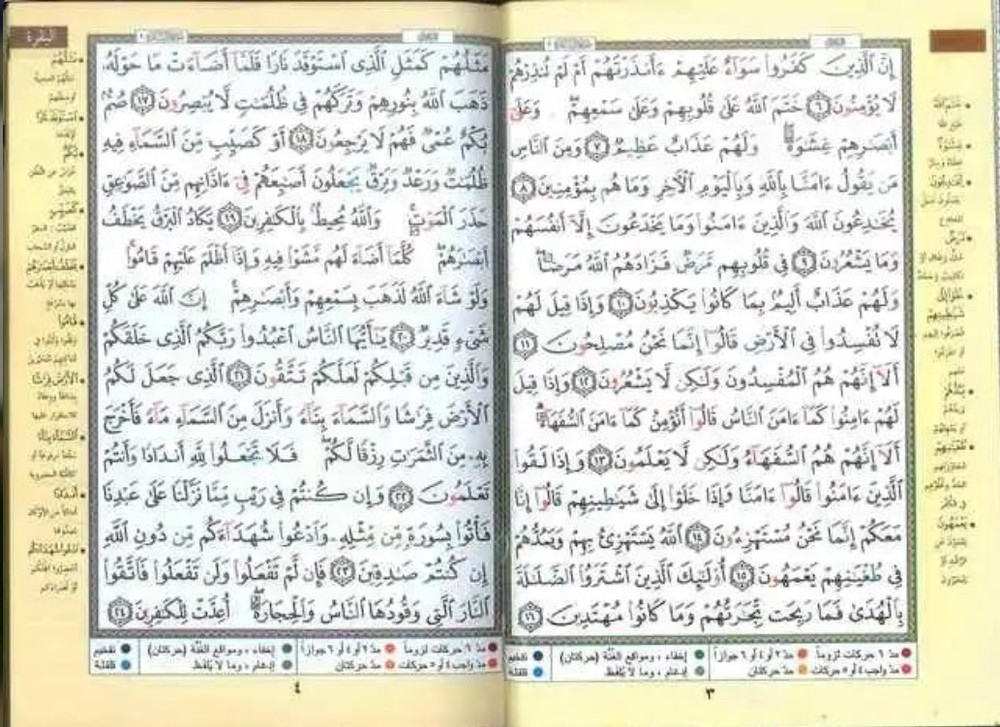 إِنَّ ٱلَّذِينَ كَفَرُوا۟ سَوَآءٌ عَلَيْهِمْ ءَأَنذَرْتَهُمْ أَمْ لَمْ تُنذِرْهُمْ
لَا يُؤْمِنُونَ ٦ خَتَمَ ٱللَّهُ عَلَىٰ قُلُوبِهِمْ وَعَلَىٰ سَمْعِهِمْ ۖ وَعَلَىٰٓ
أَبْصَـٰرِهِمْ غِشَـٰوَةٌ ۖ وَلَهُمْ عَذَابٌ عَظِيمٌ ٧ وَمِنَ ٱلنَّاسِ
مَن يَقُولُ ءَامَنَّا بِٱللَّهِ وَبِٱلْيَوْمِ ٱلْـَٔاخِرِ وَمَا هُم بِمُؤْمِنِينَ ٨
يُخَـٰدِعُونَ ٱللَّهَ وَٱلَّذِينَ ءَامَنُوا۟ وَمَا يَخْدَعُونَ إِلَّآ أَنفُسَهُمْ
وَمَا يَشْعُرُونَ ٩ فِى قُلُوبِهِم مَّرَضٌ فَزَادَهُمُ ٱللَّهُ مَرَضًا ۖ
وَلَهُمْ عَذَابٌ أَلِيمٌۢ بِمَا كَانُوا۟ يَكْذِبُونَ ١٠ وَإِذَا قِيلَ لَهُمْ
لَا تُفْسِدُوا۟ فِى ٱلْأَرْضِ قَالُوٓا۟ إِنَّمَا نَحْنُ مُصْلِحُونَ ١١
أَلَآ إِنَّهُمْ هُمُ ٱلْمُفْسِدُونَ وَلَـٰكِن لَّا يَشْعُرُونَ ١٢ وَإِذَا قِيلَ
لَهُمْ ءَامِنُوا۟ كَمَآ ءَامَنَ ٱلنَّاسُ قَالُوٓا۟ أَنُؤْمِنُ كَمَآ ءَامَنَ ٱلسُّفَهَآءُ ۗ
أَلَآ إِنَّهُمْ هُمُ ٱلسُّفَهَآءُ وَلَـٰكِن لَّا يَعْلَمُونَ ١٣ وَإِذَا لَقُوا۟
ٱلَّذِينَ ءَامَنُوا۟ قَالُوٓا۟ ءَامَنَّا وَإِذَا خَلَوْا۟ إِلَىٰ شَيَـٰطِينِهِمْ قَالُوٓا۟ إِنَّا
مَعَكُمْ إِنَّمَا نَحْنُ مُسْتَهْزِءُونَ ١٤ ٱللَّهُ يَسْتَهْزِئُ بِهِمْ وَيَمُدُّهُمْ
فِى طُغْيَـٰنِهِمْ يَعْمَهُونَ ١٥ أُو۟لَـٰٓئِكَ ٱلَّذِينَ ٱشْتَرَوُا۟ ٱلضَّلَـٰلَةَ
بِٱلْهُدَىٰ فَمَا رَبِحَت تِّجَـٰرَتُهُمْ وَمَا كَانُوا۟ مُهْتَدِينَ ١٦
مدّ ٦ حركات لزوماً مدّ ٢ أو ٤ أو ٦ جوازاً إخفاء ، ومواقع الغُنّة (حركتان) تفخيم
مدّ واجب ٤ أو ٥ حركات مدّ حركتان إدغام ، وما لا يُلفَظ قلقلة
٣
البقرة
مَثَلُهُمْ كَمَثَلِ ٱلَّذِى ٱسْتَوْقَدَ نَارًا فَلَمَّآ أَضَآءَتْ مَا حَوْلَهُۥ
ذَهَبَ ٱللَّهُ بِنُورِهِمْ وَتَرَكَهُمْ فِى ظُلُمَـٰتٍ لَّا يُبْصِرُونَ ١٧ صُمٌّۢ
بُكْمٌ عُمْىٌ فَهُمْ لَا يَرْجِعُونَ ١٨ أَوْ كَصَيِّبٍ مِّنَ ٱلسَّمَآءِ فِيهِ
ظُلُمَـٰتٌ وَرَعْدٌ وَبَرْقٌ يَجْعَلُونَ أَصَـٰبِعَهُمْ فِىٓ ءَاذَانِهِم مِّنَ ٱلصَّوَٰعِقِ
حَذَرَ ٱلْمَوْتِ ۚ وَٱللَّهُ مُحِيطٌۢ بِٱلْكَـٰفِرِينَ ١٩ يَكَادُ ٱلْبَرْقُ يَخْطَفُ
أَبْصَـٰرَهُمْ ۖ كُلَّمَآ أَضَآءَ لَهُم مَّشَوْا۟ فِيهِ وَإِذَآ أَظْلَمَ عَلَيْهِمْ قَامُوا۟ ۚ
وَلَوْ شَآءَ ٱللَّهُ لَذَهَبَ بِسَمْعِهِمْ وَأَبْصَـٰرِهِمْ ۚ إِنَّ ٱللَّهَ عَلَىٰ كُلِّ
شَىْءٍ قَدِيرٌ ٢٠ يَـٰٓأَيُّهَا ٱلنَّاسُ ٱعْبُدُوا۟ رَبَّكُمُ ٱلَّذِى خَلَقَكُمْ
وَٱلَّذِينَ مِن قَبْلِكُمْ لَعَلَّكُمْ تَتَّقُونَ ٢١ ٱلَّذِى جَعَلَ لَكُمُ
ٱلْأَرْضَ فِرَٰشًا وَٱلسَّمَآءَ بِنَآءً وَأَنزَلَ مِنَ ٱلسَّمَآءِ مَآءً فَأَخْرَجَ
بِهِۦ مِنَ ٱلثَّمَرَٰتِ رِزْقًا لَّكُمْ ۖ فَلَا تَجْعَلُوا۟ لِلَّهِ أَندَادًا وَأَنتُمْ
تَعْلَمُونَ ٢٢ وَإِن كُنتُمْ فِى رَيْبٍ مِّمَّا نَزَّلْنَا عَلَىٰ عَبْدِنَا
فَأْتُوا۟ بِسُورَةٍ مِّن مِّثْلِهِۦ وَٱدْعُوا۟ شُهَدَآءَكُم مِّن دُونِ ٱللَّهِ
إِن كُنتُمْ صَـٰدِقِينَ ٢٣ فَإِن لَّمْ تَفْعَلُوا۟ وَلَن تَفْعَلُوا۟ فَٱتَّقُوا۟
ٱلنَّارَ ٱلَّتِى وَقُودُهَا ٱلنَّاسُ وَٱلْحِجَارَةُ ۖ أُعِدَّتْ لِلْكَـٰفِرِينَ ٢٤
مدّ ٦ حركات لزوماً مدّ ٢ أو ٤ أو ٦ جوازاً إخفاء ، ومواقع الغُنّة (حركتان) تفخيم
مدّ واجب ٤ أو ٥ حركات مدّ حركتان إدغام ، وما لا يُلفَظ قلقلة
٤